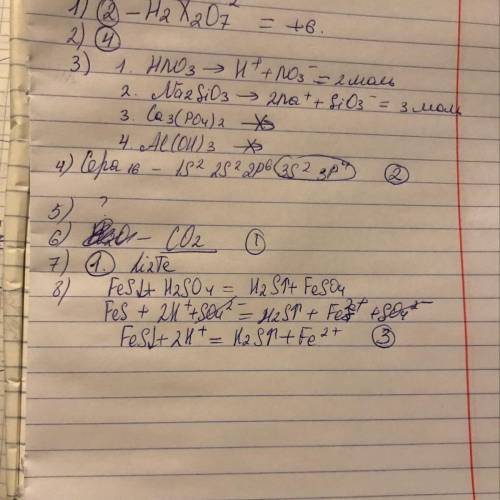 1) ② - H₂X₂O₇² = +6.
2) ④
3) 1. HNO₃ → H⁺ + NO₃⁻ = 2 моль
2. Na₂SiO₃ → 2Na⁺ + SiO₃⁻ = 3 моль
3. Ca₃(PO₄)₂ →
4. Al(OH)₃ →
4) Сера 16 - 1S² 2S² 2p⁶ 3S² 3p⁴ ②
5) ?
6) - CO₂ ①
7) ①. Li₂Te
8) FeS↓ + H₂SO₄ = H₂S↑ + FeSO₄
FeS + 2H⁺ + SO₄²⁻ = H₂S↑ + Fe²⁺ + SO₄²⁻
FeS↓ + 2H⁺ = H₂S↑ + Fe²⁺ ③